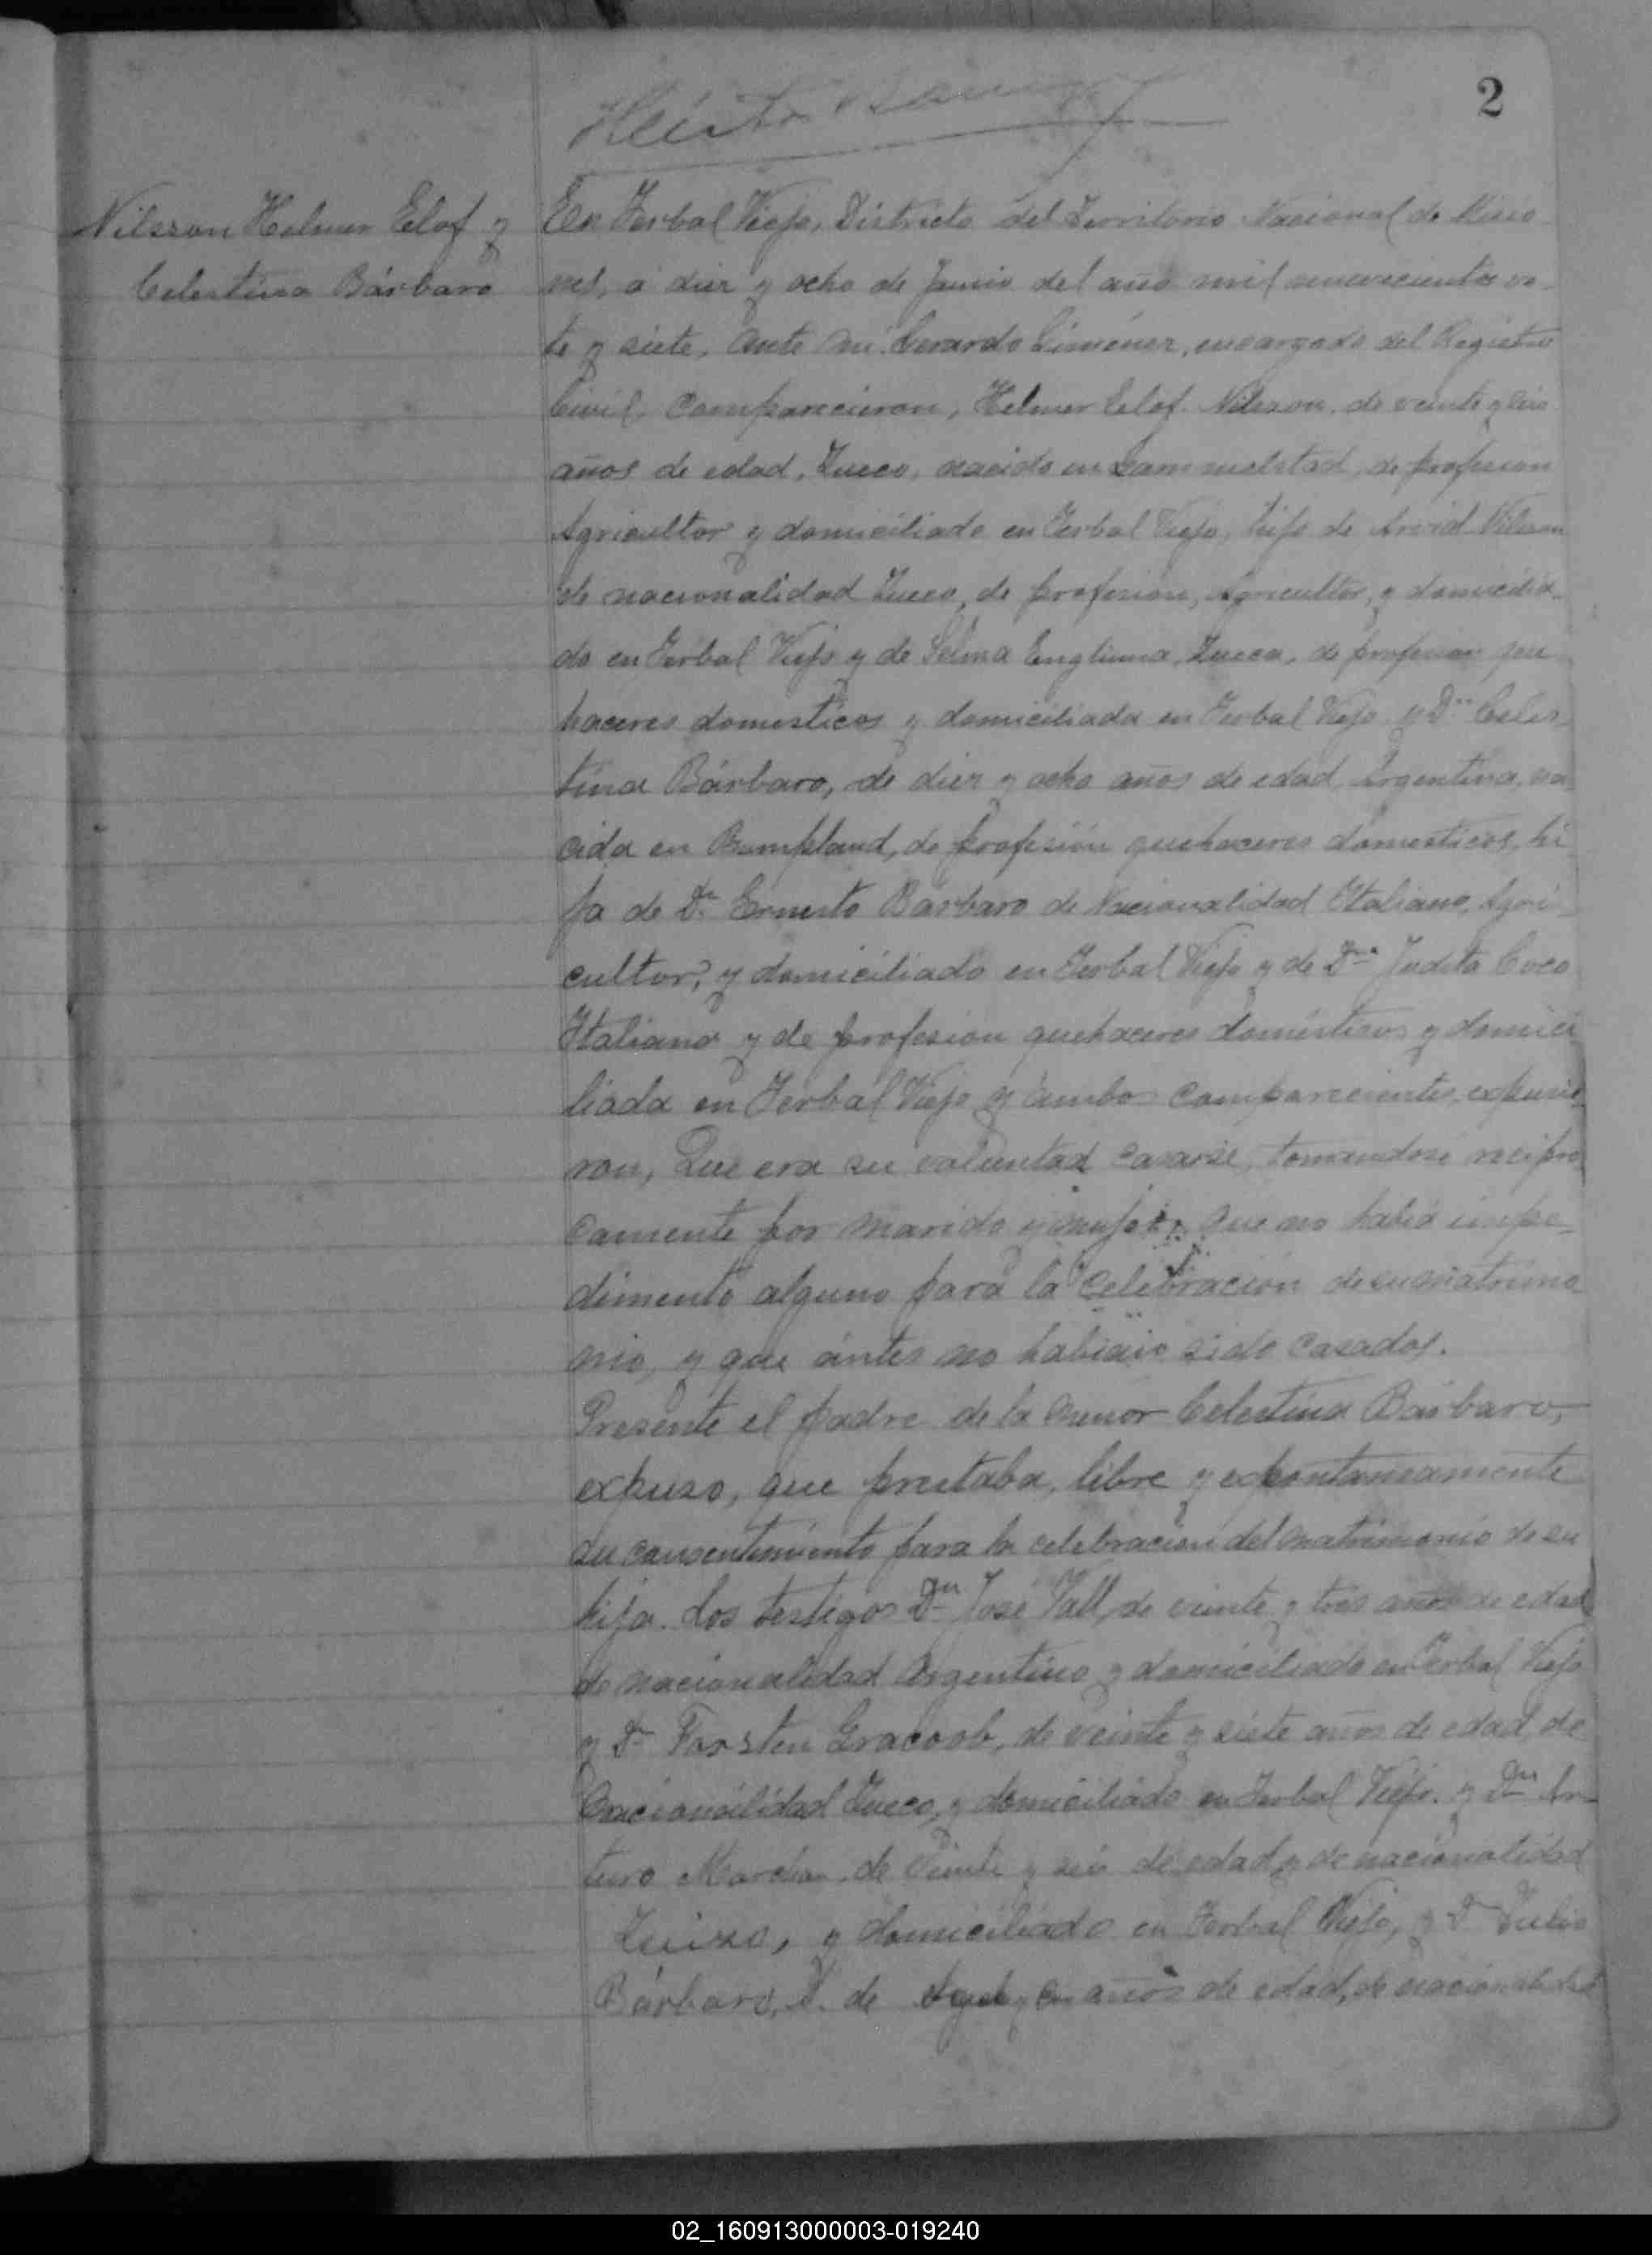 2
Nilsson Helmer Elof y
Celestina Bárbaro
En Yerbal Viejo, Districto del Territorio Nacional de Misio
nes, a diez y ocho de Junio del año mil novecientos
te y siete, ante mi Gerardo Giménez, encargado del Registro
Civil, Comparecieron, Helmer Elof Nilsson, de veinte y
años de edad, Sueco, nacido en de profesion
Agricultor y domiciliado en Yerbal Viejo, hijo de Arvid Nilsson
de nacionalidad Sueco, de profesion, Agricultor, y domicilia-
do en Yerbal Viejo y de Selma Sueca, de profesion que
haceres domesticos y domiciliada en Yerbal Viejo y Dña Celes-
tina Bárbaro, de diez y ocho años de edad, Argentina, na
cida en Bompland, de profesión quehaceres domesticos, hi
ja de Dn Ernesto Bárbaro de Nacionalidad Italiano, Agri-
cultor, y domiciliado en Yerbal Viejo y de Dña Judita Coco
Italiana y de profesion quehaceres domésticos y domici
liada en Yerbal Viejo y ambos Comparecientes, expusie
ron, Que era su voluntad casarse, tomandose recipro
camente por marido y mujer, que no habia impe-
dimento alguno para la celebración de su matrimo
nio, y que ántes no habian sido casados.
Presente el padre de la menor Celestina Bárbaro,
expuso, que prestaba, libre y expontaneamente
su consentimiento para la celebracion del matrimonio de su
hija. Los testigos Dn José Vall, de veinte y tres años de edad
de nacionalidad Argentino y domiciliado en Yerbal Viejo
y Dn Torsten de veinte y siete años de edad, de
nacionalidad Sueco, y domiciliado en Yerbal Viejo. y Dn Ar-
turo de veinte y seis de edad y de nacionalidad
Suizo, y domiciliado en Yerbal Viejo, y Dn Julio
Bárbaro, de años de edad, de nacionalidad
02_160913000003-019240